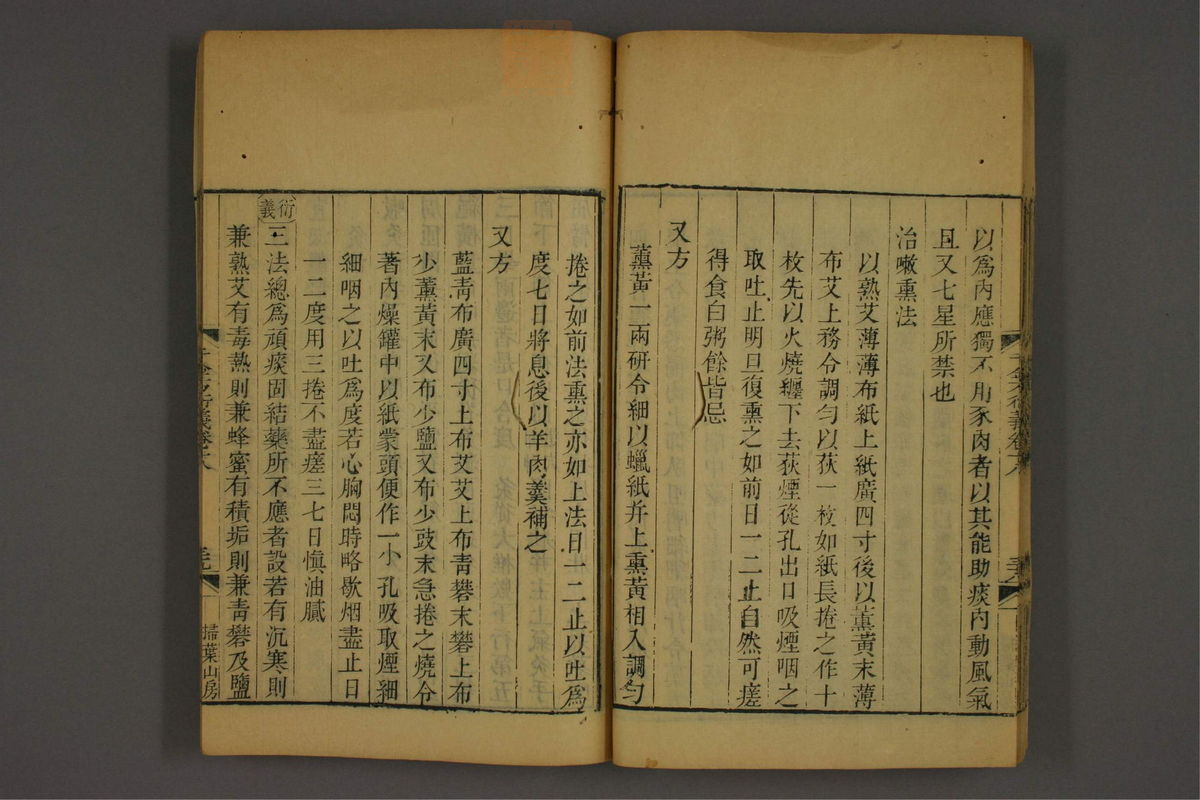 以爲內應獨不用豕肉者以其能助痰內動風氣
且又七星所禁也
治嗽熏法
以熟艾薄薄布紙上紙廣四寸後以薰黃末薄
布艾上務令調勻以荻一枚如紙長捲之作十
枚先以火燒纏下去荻煙從孔出口吸煙咽之
取吐止明旦復熏之如前日一二止自然可瘥
得食白粥餘皆忌
又方
薰黃一兩研令細以蠟紙并上熏黃相入調勻
捲之如前法熏之亦如上法日一二止以吐爲
度七日將息後以羊肉羹補之
又方
藍青布廣四寸上布艾艾上布青礬末礬上布
少薰黃末又布少鹽又布少豉末急捲之燒令
著內燥罐中以紙蒙頭便作一小孔吸取煙細
細咽之以吐爲度若心胸悶時略歇烟盡止日
一二度用三捲不盡瘥三七日愼油膩
衍義
三法總爲頑痰固結藥所不應者設若有沉寒則
兼熟艾有毒熱則兼蜂蜜有積垢則兼青礬及鹽
掃葉山房